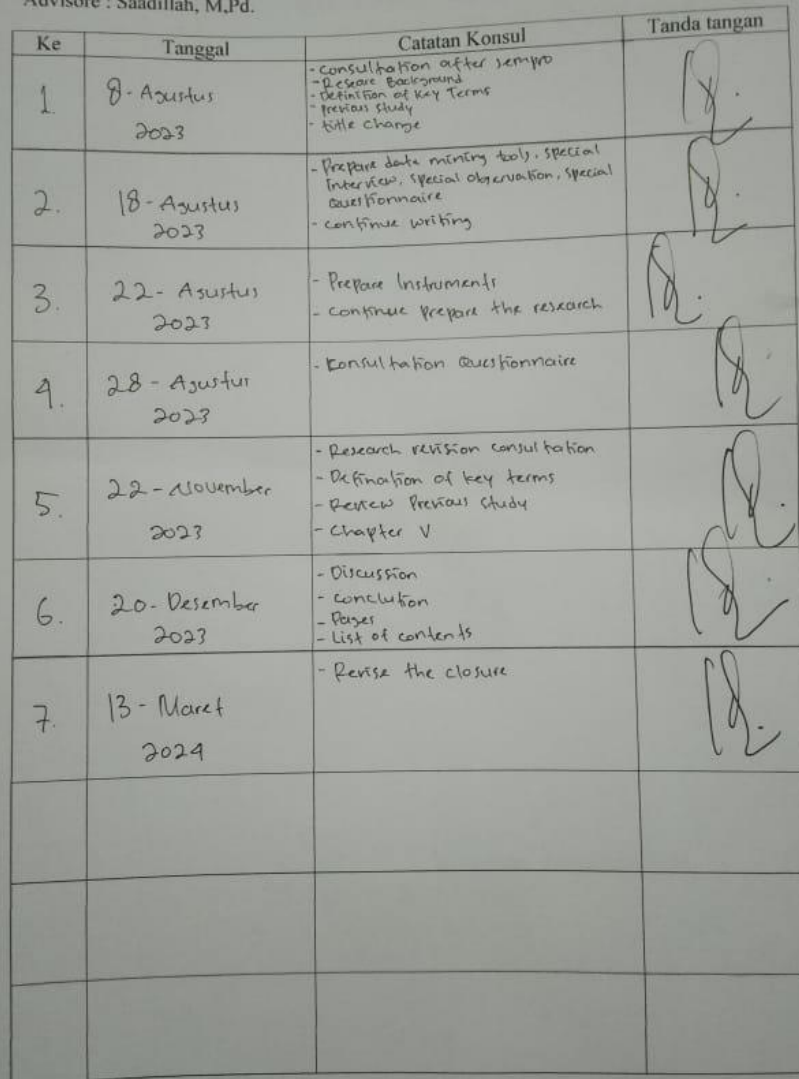 Advisore : Saadillah, M,Pd.
Ke Tanggal Catatan Konsul Tanda tangan
1. 8 - Agustus 2023
- Consultation after sempro
- Researe Background
- Definition of Key Terms
- Previous Study
- title change
2. 18 - Agustus 2023
- Prepare data mining tools, special
Interview, special observation, special
Questionnaire
- continue writing
3. 22 - Agustus 2023
- Prepare Instruments
- continue prepare the research
4. 28 - Agustus 2023
- Konsultation Questionnaire
5. 22 - November 2023
- Research revision consultation
- Defination of key terms
- Review Previous Study
- Chapter V
6. 20 - Desember 2023
- Discussion
- conclution
- Pages
- List of contents
7. 13 - Maret 2024
- Revise the closure